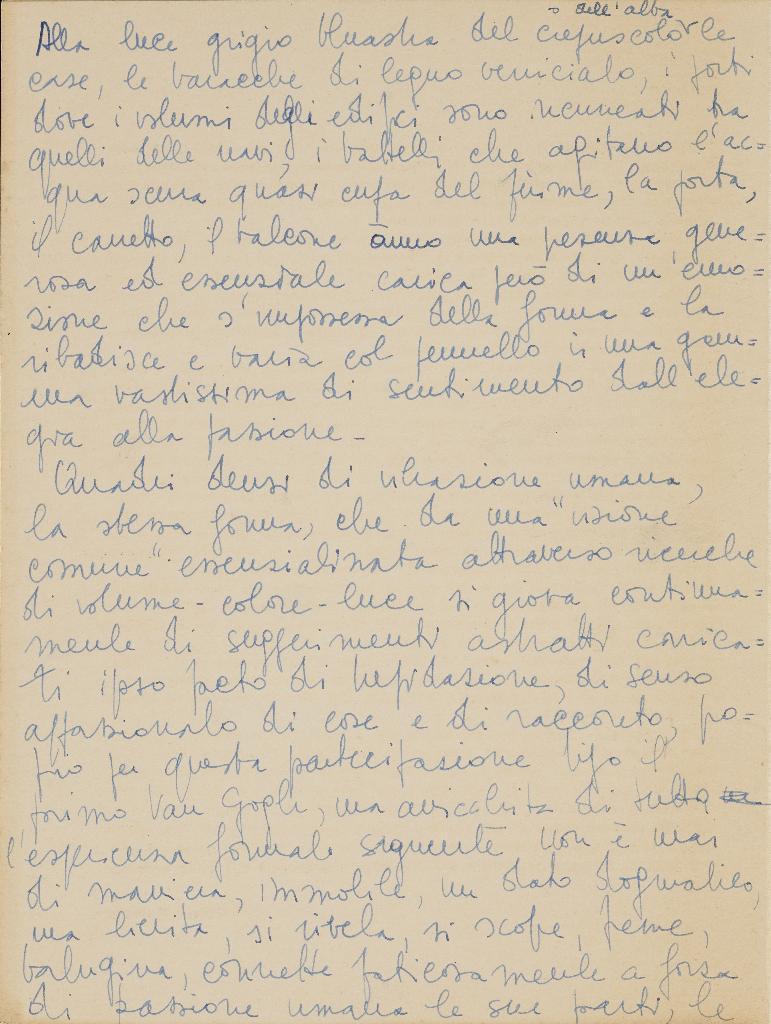 dell'alba
Alla luce grigio bluastra del crepuscolo le
case, le baracche di legno verniciato, i porti
dove i volumi degli edifici sono incuneati tra
quelli delle navi, i battelli che agitano l'ac=
qua scura quasi cupa del fiume, la porta,
il canetto, il balcone ànno una presenza gene=
rosa ed essenziale carica però di un'emo=
zione che s'impossessa della forma e la
ribadisce e varia col pennello in una gam=
ma vastissima di sentimento dall'ele=
gia alla passione -
Quadri densi di vibrazione umana,
la stessa forma, che da una "visione
comune" essenzializzata attraverso ricerche
di volume - colore - luce si giova continua=
mente di suggerimenti astratti carica=
ti ipso facto di trepidazione, di senso
appassionato di cose e di racconto, pro=
prio per questa partecipazione tipo il
primo Van Gogh, ma arricchita di tutta
l'esperienza formale seguente non è mai
di maniera, immobile, un dato dogmatico,
ma lievita, si rivela, si scopre, freme,
balugina, connette faticosamente a forza
di passione umana le sue parti, le